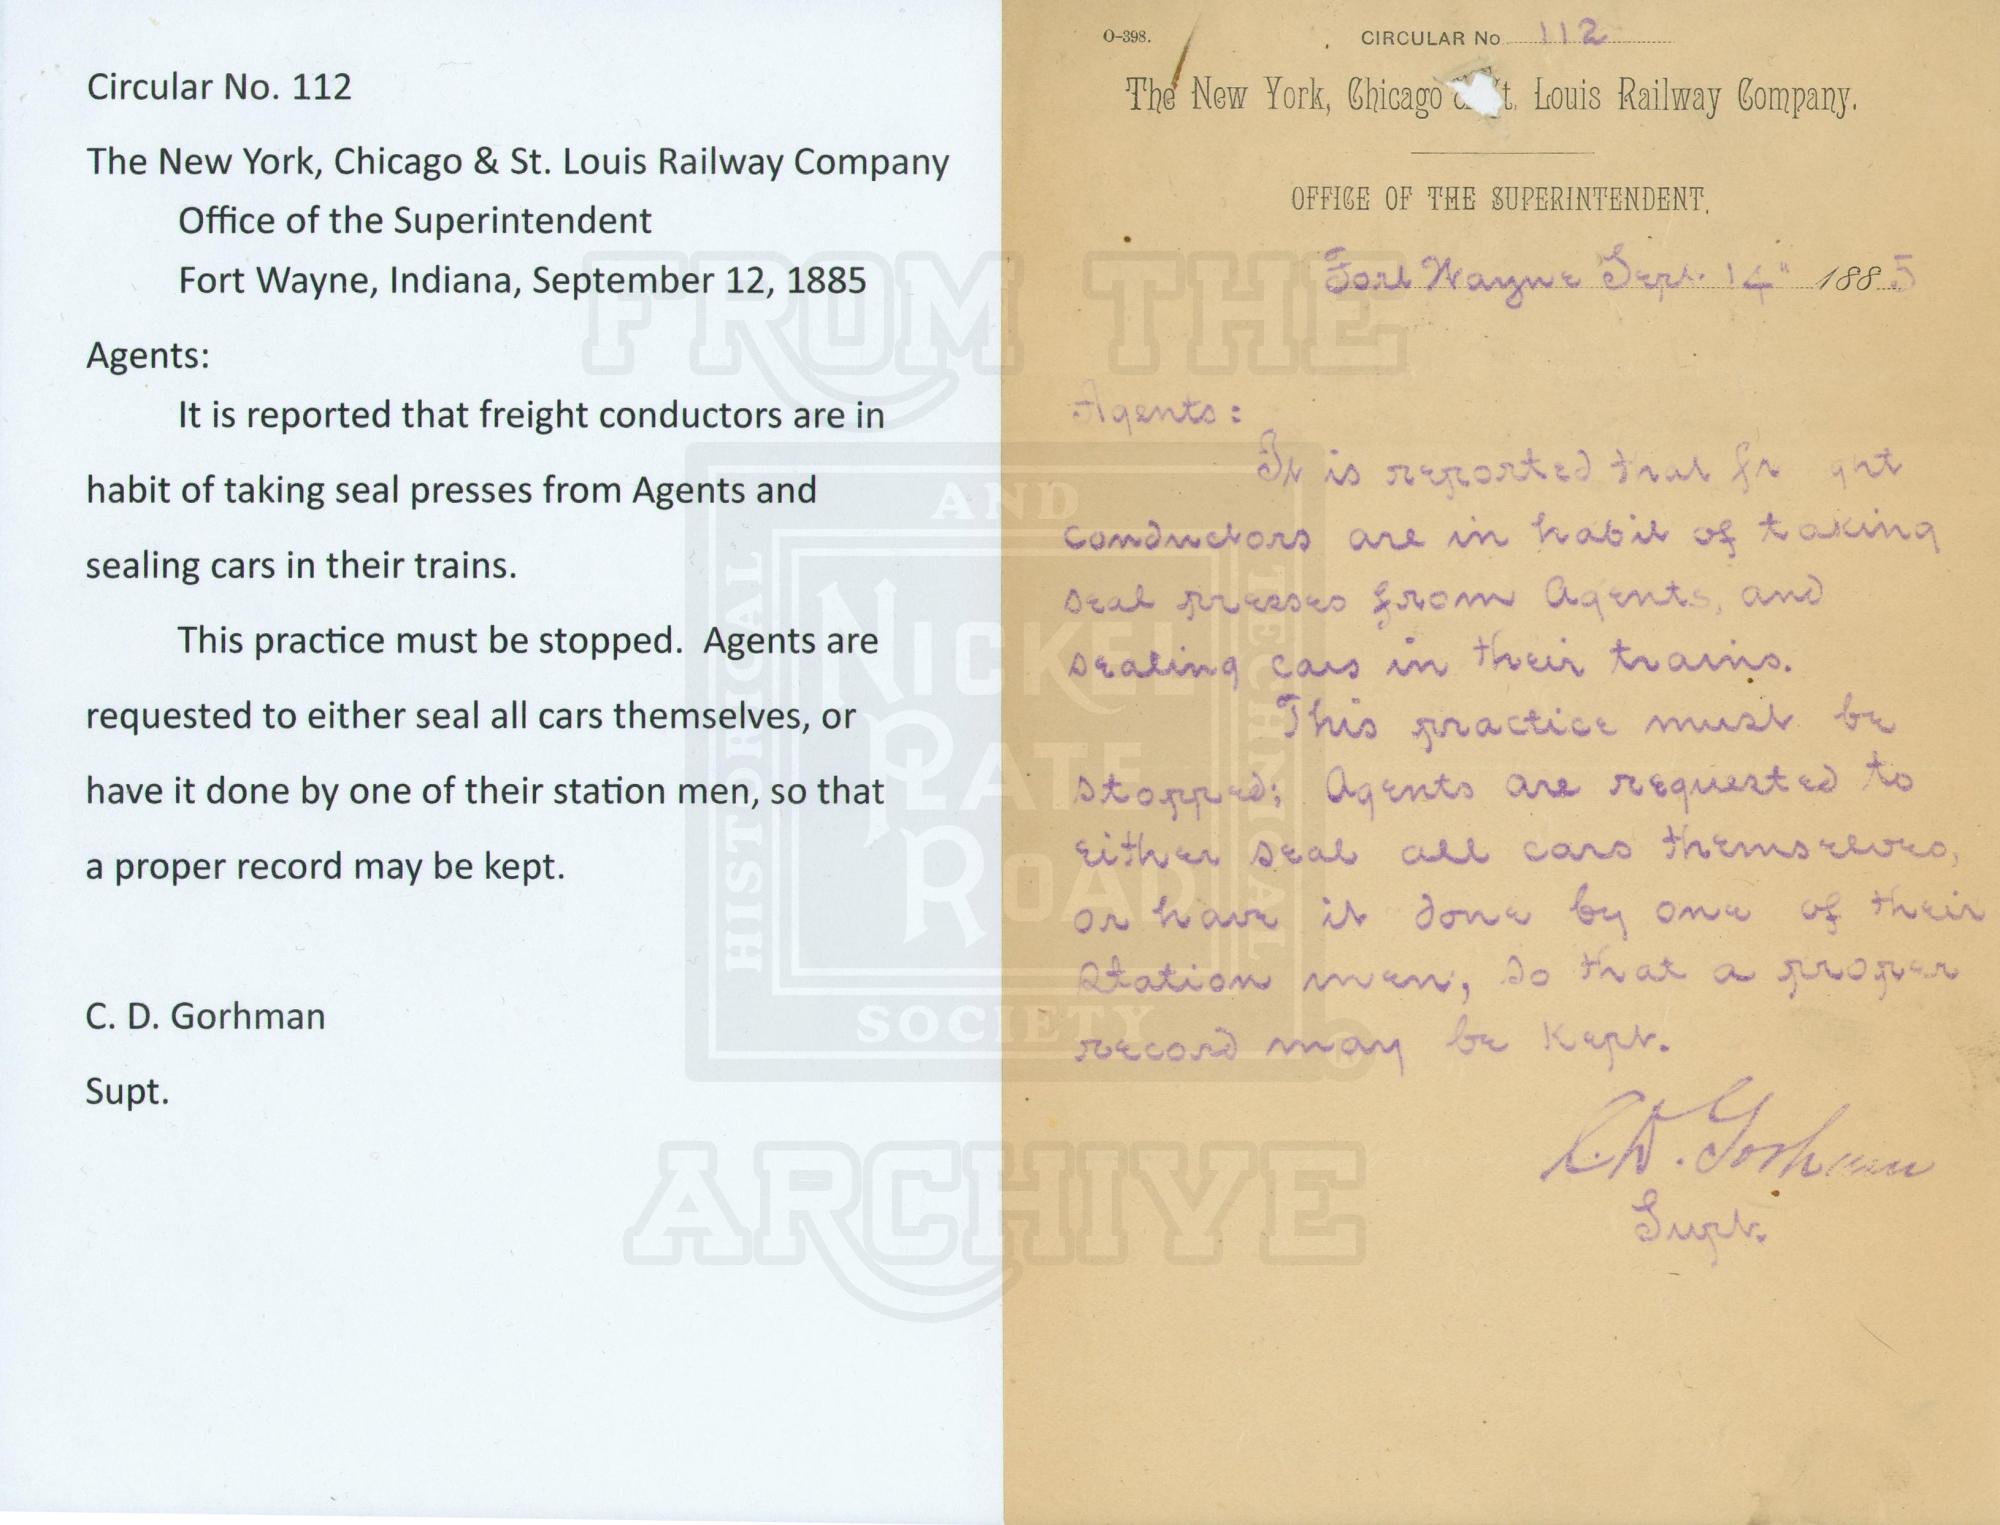 Circular No. 112
The New York, Chicago & St. Louis Railway Company
Office of the Superintendent
Fort Wayne, Indiana, September 12, 1885
Agents:
It is reported that freight conductors are in
habit of taking seal presses from Agents and
sealing cars in their trains.
This practice must be stopped.  Agents are
requested to either seal all cars themselves, or
have it done by one of their station men, so that
a proper record may be kept.
C. D. Gorhman
Supt.
O-398.
CIRCULAR No 112
The New York, Chicago & St. Louis Railway Company.
OFFICE OF THE SUPERINTENDENT.
Fort Wayne Sept. 14" 1885
Agents:
It is reported that fr ght
conductors are in habit of taking
seal presses from Agents, and
sealing cars in their trains.
This practice must be
stopped; Agents are requested to
either seal all cars themselves,
or have it done by one of their
station men, so that a proper
record may be kept.
C.D. Gorham
Supt.
FROM THE
HISTORICAL AND TECHNICAL SOCIETY
NICKEL
PLATE
ROAD
®
ARCHIVE